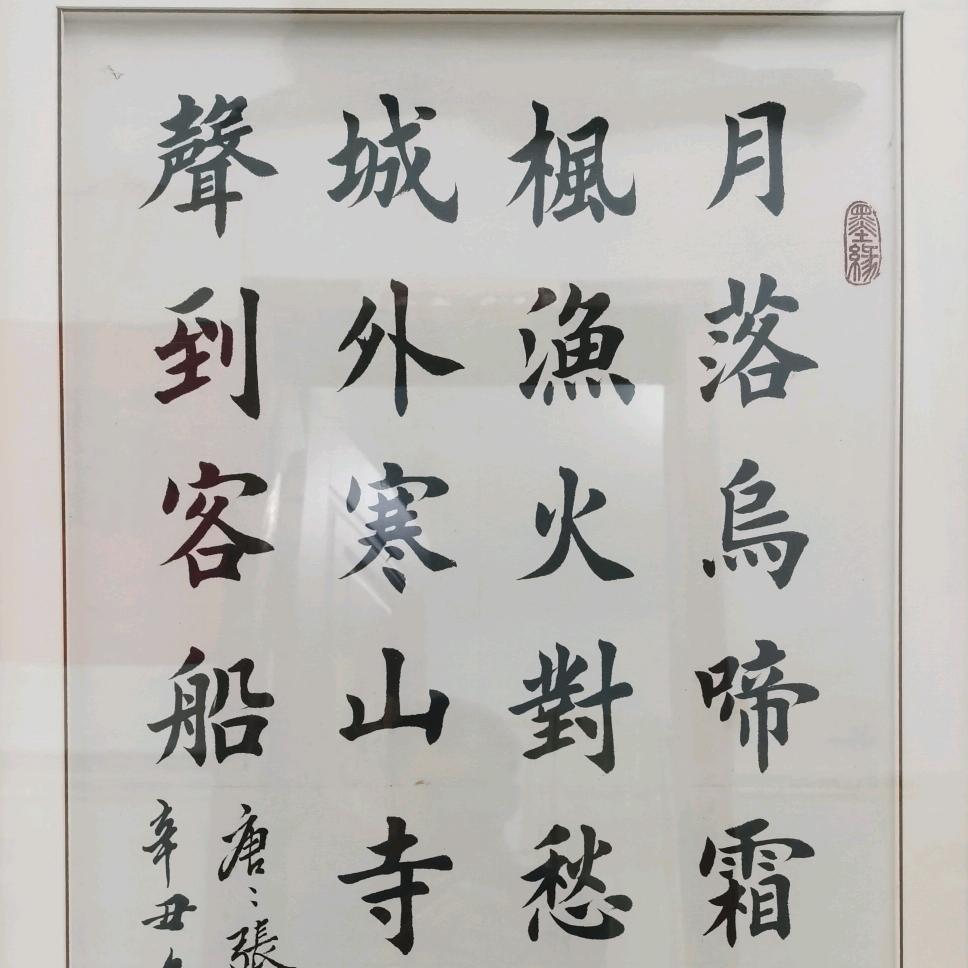 墨緣
月落烏啼霜
楓漁火對愁
城外寒山寺
聲到客船
唐：張
辛丑